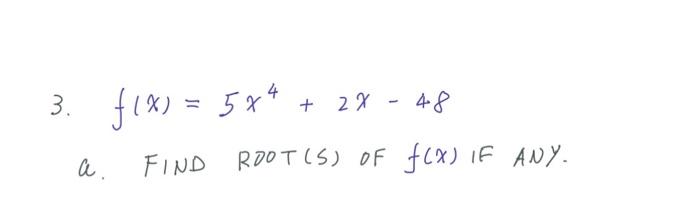 3. f(x) = 5x⁴ + 2x - 48
a. FIND ROOT(S) OF f(x) IF ANY.